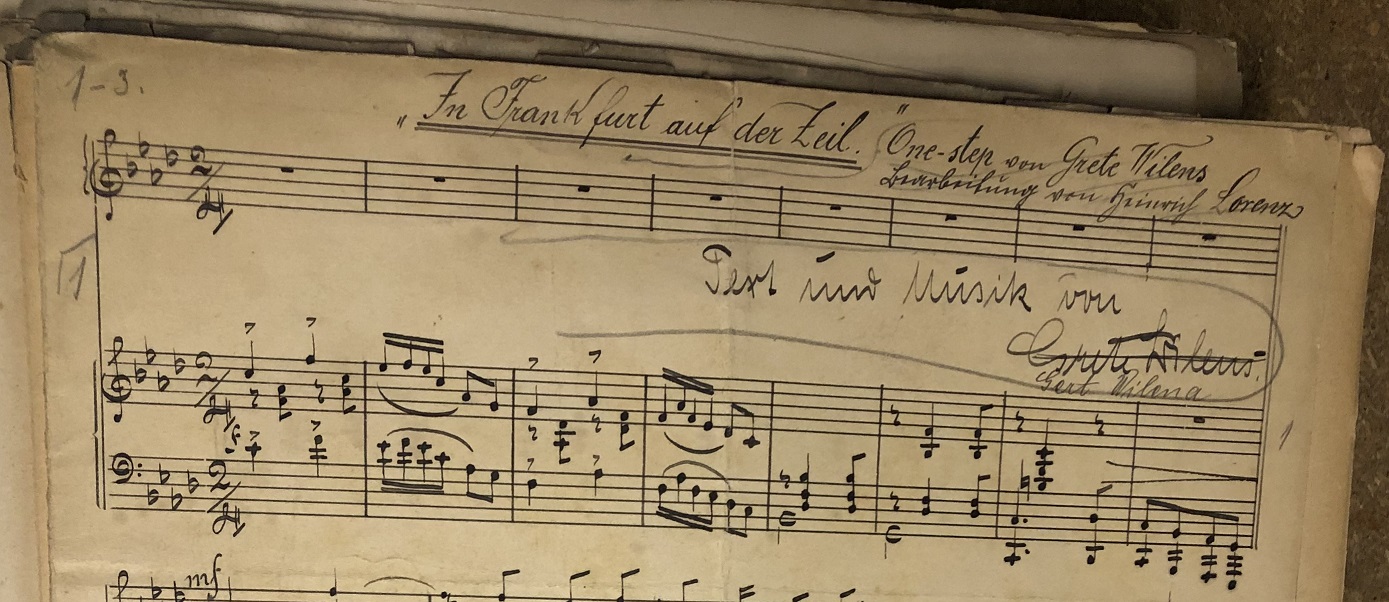 1-3.
„In Frankfurt auf der Zeil.“
One-step von Grete Wilens
Bearbeitung von Heinrich Lorenz
Text und Musik von
Grete Wilens.
Gert Wilena
1
mf